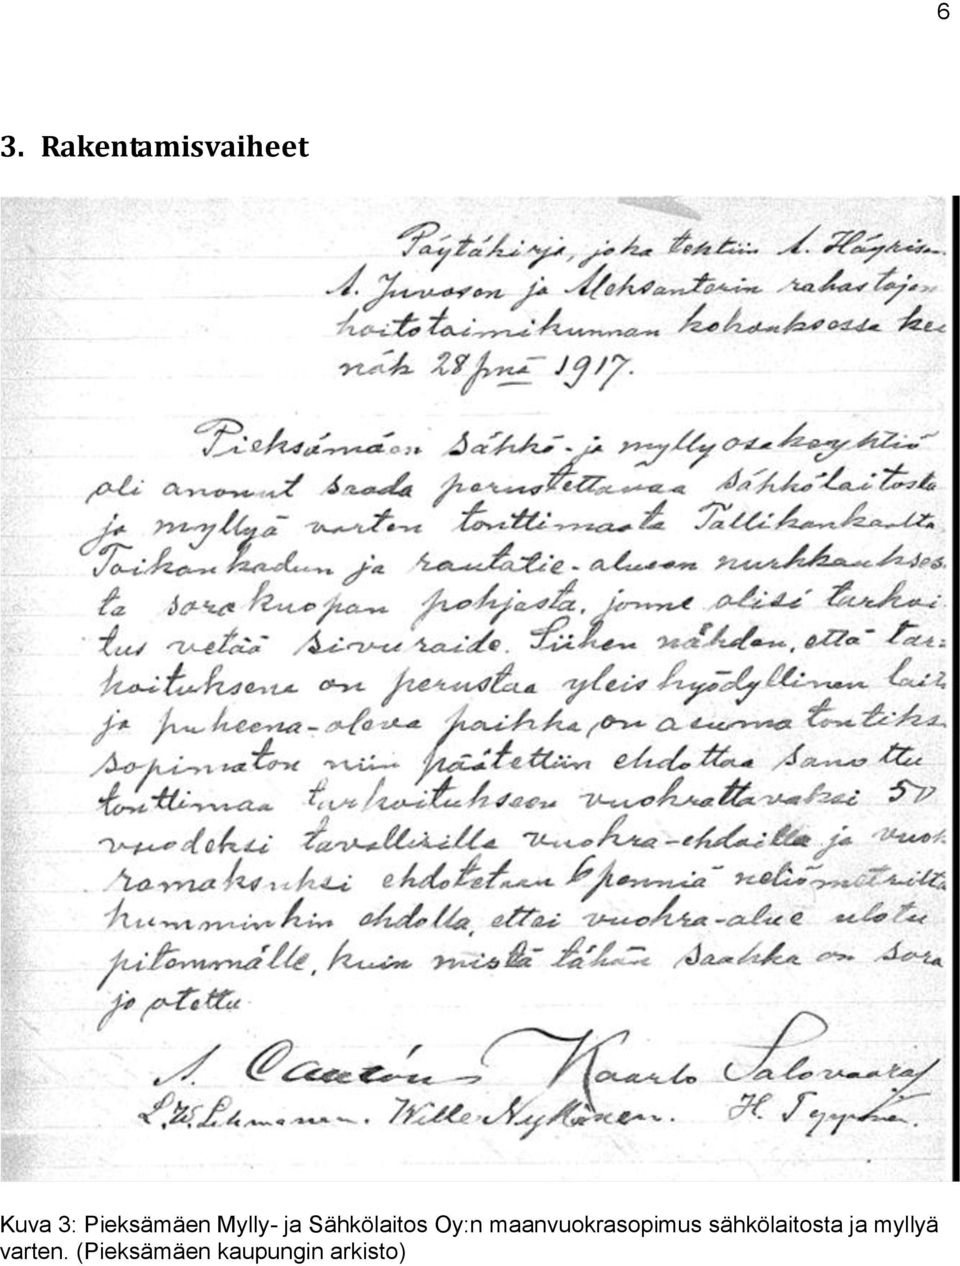 6
3. Rakentamisvaiheet
Pöytäkirja, joka tehtiin A. Häyrisen
A. Juvosen ja Aleksanterin rahastojen
hoitotoimikunnan kokouksessa kei
näk 28 p:nä 1917.
Pieksämäen Sähkö- ja myllyosakeyhtiö
oli anonut saada perustettavaa sähkölaitosta
ja myllyä varten tonttimaata Tallikankaalta
Toikankadun ja rautatie-alueen nurkkaukses
ta sorakuopan pohjasta, jonne olisi tarkoi
tus vetää sivuraide. Siihen nähden, että tar-
koituksena on perustaa yleishyödyllinen lait
ja puheena-oleva paikka on asuma tontiks
sopimaton niin päätettiin ehdottaa sanottu
tonttimaa tarkoitukseen vuokrattavaksi 50
vuodeksi tavallisilla vuokra-ehdoilla ja vuok
ramaksuksi ehdotetaan 6 penniä neliömetriltä
kumminkin ehdolla, ettei vuokra-alue ulotu
pitemmälle, kuin mistä tähän saakka on sora
jo otettu
A. Kaarlo Salovaara
Lehmanen. Wille Nykänen. H. Tyyrinen.
Kuva 3: Pieksämäen Mylly- ja Sähkölaitos Oy:n maanvuokrasopimus sähkölaitosta ja myllyä
varten. (Pieksämäen kaupungin arkisto)